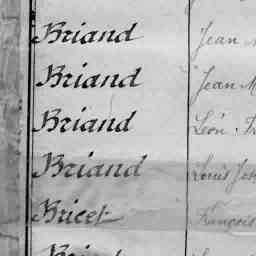 Briand Jean
Briand Jean M
Briand Léon
Briand Louis
Bricet François